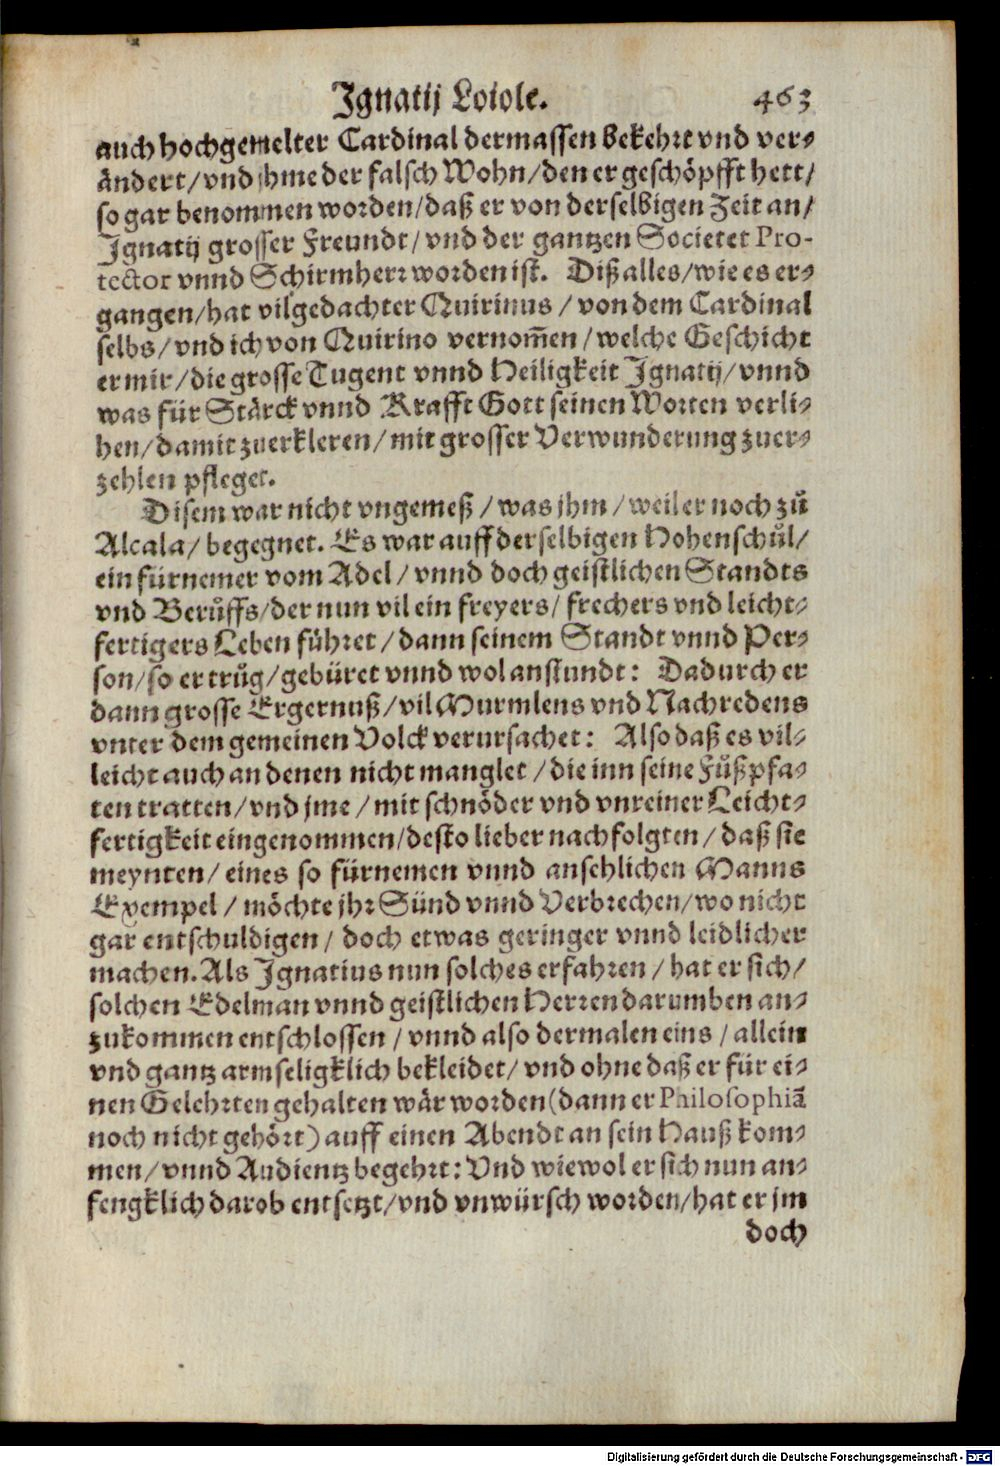 Ignatij Loiole. 463
auch hochgemelter Cardinal dermassen bekehrt vnd ver-
ändert/vnd jhme der falsch Wohn/den er geschöpfft hett/
so gar benommen worden/daß er von derselbigen Zeit an/
Ignatij grosser Freundt/vnd der gantzen Societet Pro-
tector vnnd Schirmherr worden ist. Diß alles/wie es er-
gangen/hat vilgedachter Quirinus/von dem Cardinal
selbs/vnd ich von Quirino vernom̃en/welche Geschicht
er mir/die grosse Tugent vnnd Heiligkeit Ignatij/vnnd
was für Stärck vnnd Krafft Gott seinen Worten verli-
hen/damit zuerkleren/mit grosser Verwunderung zuer-
zehlen pfleget.
Disem war nicht vngemeß/was jhm/weil er noch zů
Alcala/begegnet. Es war auff derselbigen Hohenschůl/
ein fürnemer vom Adel/vnnd doch geistlichen Standts
vnd Berůffs/der nun vil ein freyers/frechers vnd leicht-
fertigers Leben führet/dann seinem Standt vnnd Per-
son/so er trůg/gebüret vnnd wol anstundt: Dadurch er
dann grosse Ergernuß/vil Murmlens vnd Nachredens
vnter dem gemeinen Volck verursachet: Also daß es vil-
leicht auch an denen nicht manglet/die inn seine Fůßpfa-
ten tratten/vnd jme/mit schnöder vnd vnreiner Leicht-
fertigkeit eingenommen/desto lieber nachfolgten/daß sie
meynten/eines so fürnemen vnnd ansehlichen Manns
Exempel/möchte jhr Sünd vnnd Verbrechen/wo nicht
gar entschuldigen/doch etwas geringer vnnd leidlicher
machen. Als Ignatius nun solches erfahren/hat er sich/
solchen Edelman vnnd geistlichen Herren darumben an-
zukommen entschlossen/vnnd also dermalen eins/allein
vnd gantz armseligklich bekleidet/vnd ohne daß er für ei-
nen Gelehrten gehalten wär worden(dann er Philosophiã
noch nicht gehört)auff einen Abendt an sein Hauß kom-
men/vnnd Audientz begehrt: Vnd wiewol er sich nun an-
fengklich darob entsetzt/vnd vnwürsch worden/hat er jm
doch
Digitalisierung gefördert durch die Deutsche Forschungsgemeinschaft - DFG